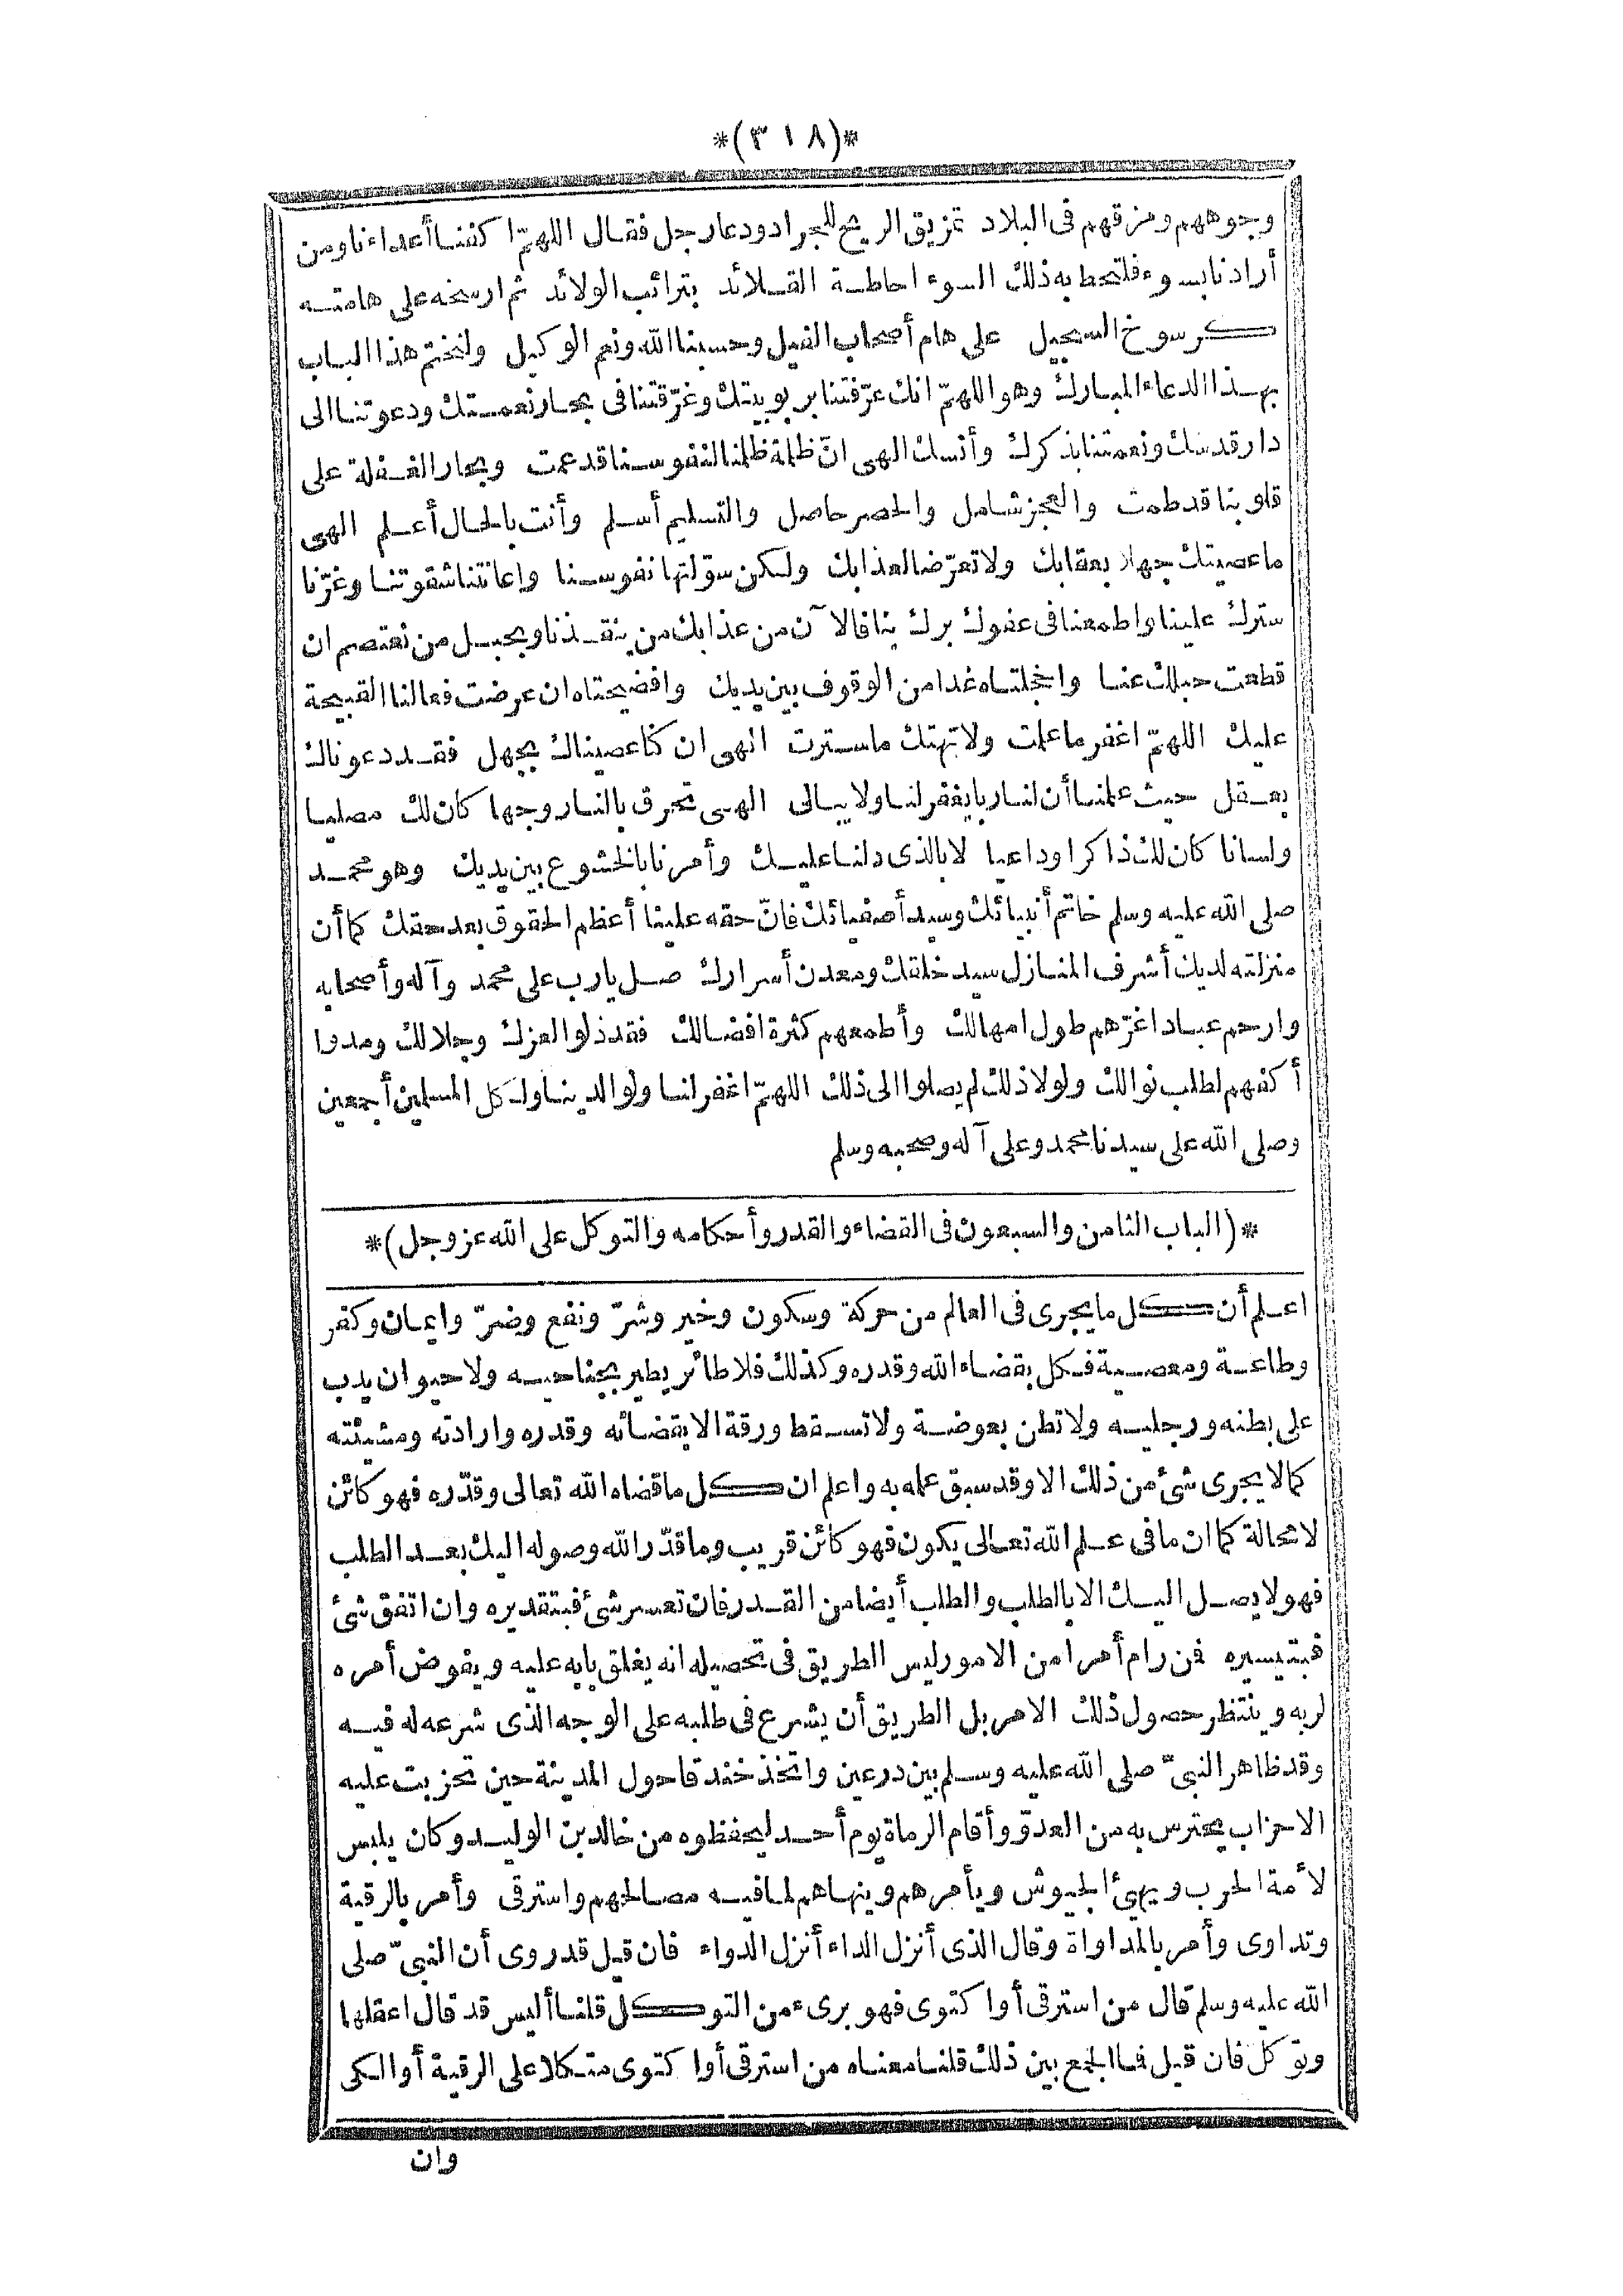 *(٣١٨)*
وجوههم ومزقهم فى البلاد تمزيق الريح للجراد ودعا رجل فقال اللهمّ اكفنا أعداءنا ومن
أرادنا بسوء فلتحط به ذلك السوء احاطة القلائد بترائب الولائد ثم ارسخه على هامته
كرسوخ السجيل على هام أصحاب الفيل وحسبنا الله ونعم الوكيل ولنختم هذا الباب
بهذا الدعاء المبارك وهو اللهمّ انك عرّفتنا بربوبيتك وغرّقتنا فى بحار نعمتك ودعوتنا الى
دار قدسك ونعمتنا بذكرك وأنسك الهى انّ ظلمة ظلمنا لنفوسنا قد عمت وبحار الغفلة على
قلوبنا قد طمت والعجز شامل والحصر حاصل والتسليم أسلم وأنت بالحال أعلم الهى
ما عصيتك جهلا بعقابك ولا تعرّضا لعذابك ولكن سوّلتها نفوسنا واعانتنا شقوتنا وغرّنا
سترك علينا واطمعنا فى عفوك برك بنا فالآن من عذابك من ينقذنا وبحبل من نعتصم ان
قطعت حبلك عنا واخجلتاه غدا من الوقوف بين يديك وافضيحتاه ان عرضت فعالنا القبيحة
عليك اللهمّ اغفر ما علمت ولا تهتك ما سترت الهى ان كنا عصيناك بجهل فقد دعوناك
بعقل حيث علمنا أن لنا ربا يغفر لنا ولا يبالى الهى تحرق بالنار وجها كان لك مصليا
ولسانا كان لك ذاكرا وداعيا لا بالذى دلنا عليك وأمرنا بالخشوع بين يديك وهو محمد
صلى الله عليه وسلم خاتم أنبيائك وسيد أصفيائك فانّ حقه علينا أعظم الحقوق بعد حقك كما أن
منزلته لديك أشرف المنازل سيد خلقك ومعدن أسرارك صل يا رب على محمد وآله وأصحابه
وارحم عبادا غرّهم طول امهالك وأطمعهم كثرة افضالك فقد ذلوا لعزك وجلالك ومدوا
أكفهم لطلب نوالك ولولا ذلك لم يصلوا الى ذلك اللهمّ اغفر لنا ولوالدينا ولكل المسلمين أجمعين
وصلى الله على سيدنا محمد وعلى آله وصحبه وسلم
*(الباب الثامن والسبعون فى القضاء والقدر وأحكامه والتوكل على الله عز وجل)*
اعلم أن كل ما يجرى فى العالم من حركة وسكون وخير وشرّ ونفع وضرّ وايمان وكفر
وطاعة ومعصية فكل بقضاء الله وقدره وكذلك فلا طائر يطير بجناحيه ولا حيوان يدب
على بطنه ورجليه ولا تطن بعوضة ولا تسقط ورقة الا بقضائه وقدره وارادته ومشيئته
كما لا يجرى شئ من ذلك الا وقد سبق علمه به واعلم ان كل ما قضاه الله تعالى وقدّره فهو كائن
لا محالة كما ان ما فى علم الله تعالى يكون فهو كائن قريب وما قدّر الله وصوله اليك بعد الطلب
فهو لا يصل اليك الا بالطلب والطلب أيضا من القدر فان تعسر شئ فبتقديره وان اتفق شئ
فبتيسيره فمن رام أمرا من الامور ليس الطريق فى تحصيله انه يغلق بابه عليه ويفوض أمره
لربه وينتظر حصول ذلك الامر بل الطريق أن يشرع فى طلبه على الوجه الذى شرعه له فيه
وقد ظاهر النبىّ صلى الله عليه وسلم بين درعين واتخذ خندقا حول المدينة حين تحزبت عليه
الاحزاب يحترس به من العدوّ وأقام الرماة يوم أحد ليحفظوه من خالد بن الوليد وكان يلبس
لأمة الحرب ويهيئ الجيوش ويأمرهم وينهاهم لما فيه مصالحهم واسترقى وأمر بالرقية
وتداوى وأمر بالمداواة وقال الذى أنزل الداء أنزل الدواء فان قيل قد روى أن النبىّ صلى
الله عليه وسلم قال من استرقى أو اكتوى فهو برىء من التوكل قلنا أليس قد قال اعقلها
وتوكل فان قيل فما الجمع بين ذلك قلنا معناه من استرقى أو اكتوى متكلا على الرقية أو الكى
وان